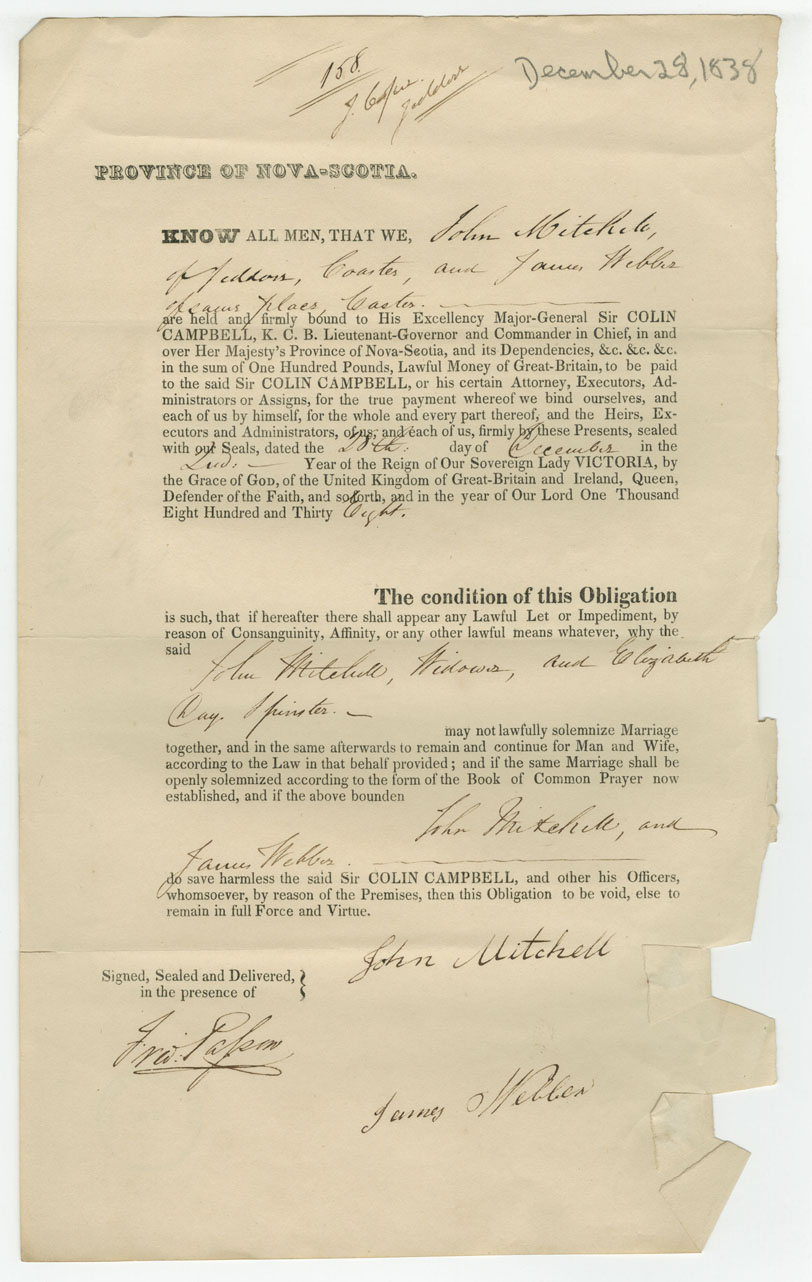 158.
December 28, 1838
Jeddore
PROVINCE OF NOVA-SCOTIA.
KNOW ALL MEN, THAT WE, John Mitchell,
of Jeddore, Coaster, and James Webber
of same place, Coaster.
are held and firmly bound to His Excellency Major-General Sir COLIN
CAMPBELL, K. C. B. Lieutenant-Governor and Commander in Chief, in and
over Her Majesty's Province of Nova-Scotia, and its Dependencies, &c. &c. &c.
in the sum of One Hundred Pounds, Lawful Money of Great-Britain, to be paid
to the said Sir COLIN CAMPBELL, or his certain Attorney, Executors, Ad-
ministrators or Assigns, for the true payment whereof we bind ourselves, and
each of us by himself, for the whole and every part thereof, and the Heirs, Ex-
ecutors and Administrators, of us, and each of us, firmly by these Presents, sealed
with our Seals, dated the 28th: day of December in the
2nd: Year of the Reign of Our Sovereign Lady VICTORIA, by
the Grace of GOD, of the United Kingdom of Great-Britain and Ireland, Queen,
Defender of the Faith, and so forth, and in the year of Our Lord One Thousand
Eight Hundred and Thirty Eight.
The condition of this Obligation
is such, that if hereafter there shall appear any Lawful Let or Impediment, by
reason of Consanguinity, Affinity, or any other lawful means whatever, why the
said
John Mitchell, Widower, and Elizabeth
Day. Spinster.
may not lawfully solemnize Marriage
together, and in the same afterwards to remain and continue for Man and Wife,
according to the Law in that behalf provided; and if the same Marriage shall be
openly solemnized according to the form of the Book of Common Prayer now
established, and if the above bounden
John Mitchell, and
James Webber.
do save harmless the said Sir COLIN CAMPBELL, and other his Officers,
whomsoever, by reason of the Premises, then this Obligation to be void, else to
remain in full Force and Virtue.
John Mitchell
Signed, Sealed and Delivered,
in the presence of
James Webber